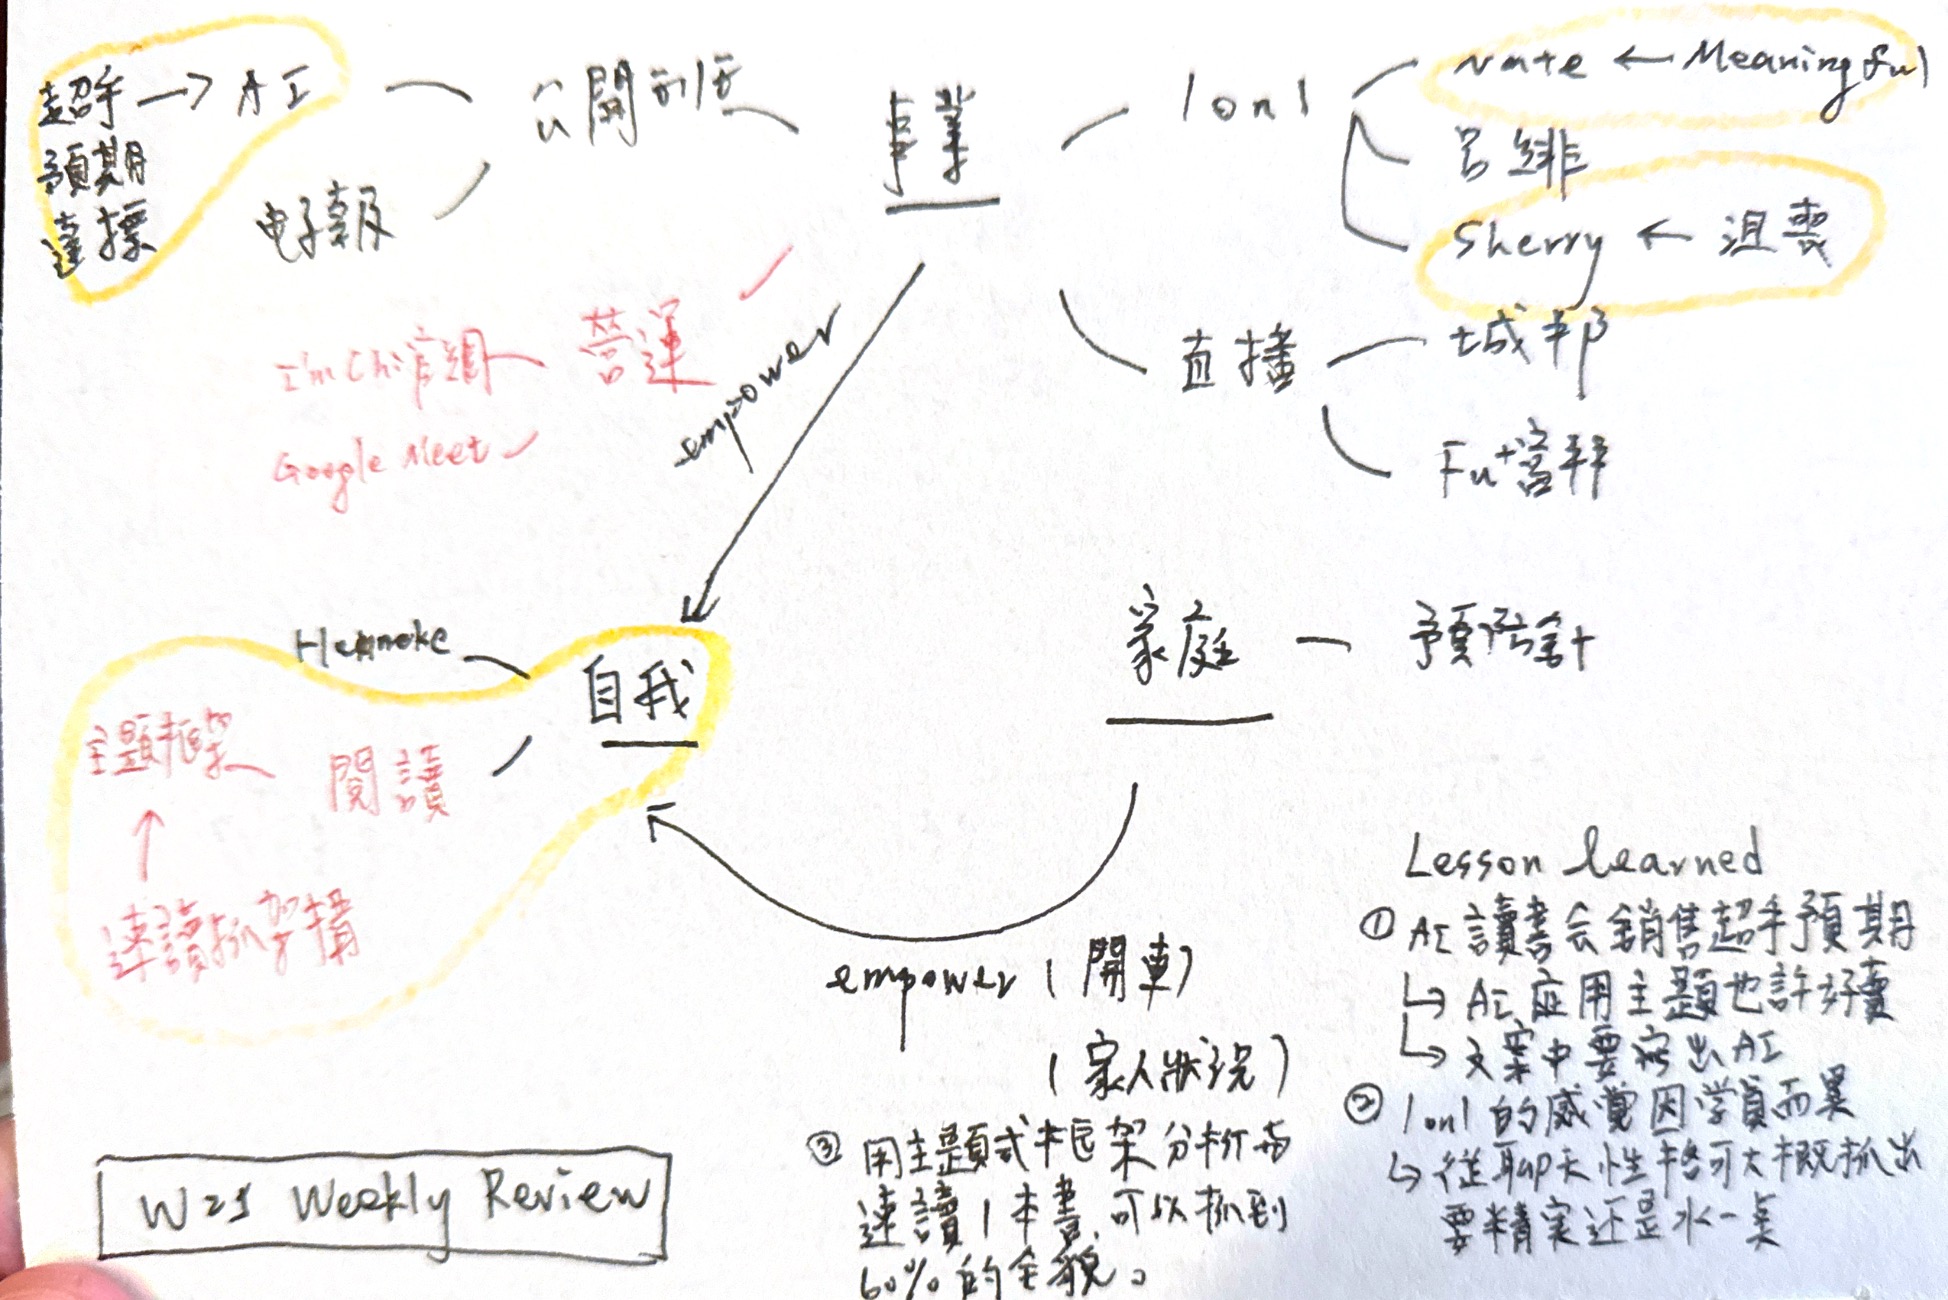 超乎 → AI
預期
達標
公開班
电子報
事業
1 on 1
Nate ← Meaningful
呂緋
Sherry ← 沮喪
直播
城邦
Fu+富邦
營運
I'm Chi 官網
Google Meet
empower
自我
閱讀
主題框架
速讀抓架構
家庭
empower (開車)
(家人狀況)
Lesson learned
① AI 讀書会銷售超乎預期
↳ AI 应用主題也許好賣
↳ 文案中要突出 AI
② 1on1 的感覺因学員而異
↳ 從聊天性格可大概抓出
要精实还是水一点
③ 用主題式框架分析与
速讀 1 本書, 可以抓到
60% 的全貌。
W21 Weekly Review